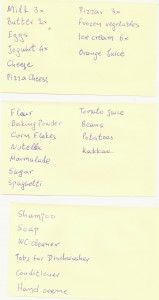 Milk 3x
Butter 2x
Eggs
Yogurt 4x
Cheese
Pizza Cheese
Pizzas 4x
Frozen vegetables
Ice cream 6x
Orange Juice
Flour
Baking Powder
Corn Flakes
Nutella
Marmalade
Sugar
Spaghetti
Tomato Juice
Beans
Potatoes
Shampoo
Soap
WC cleaner
Tabs for Dishwasher
Conditioner
Hand creme